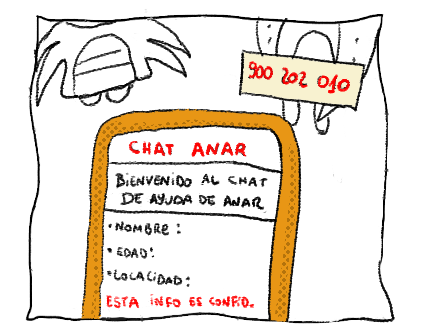 900 202 010
CHAT ANAR
BIENVENIDO AL CHAT
DE AYUDA DE ANAR
• NOMBRE:
• EDAD:
• LOCALIDAD:
ESTA INFO ES CONFID.